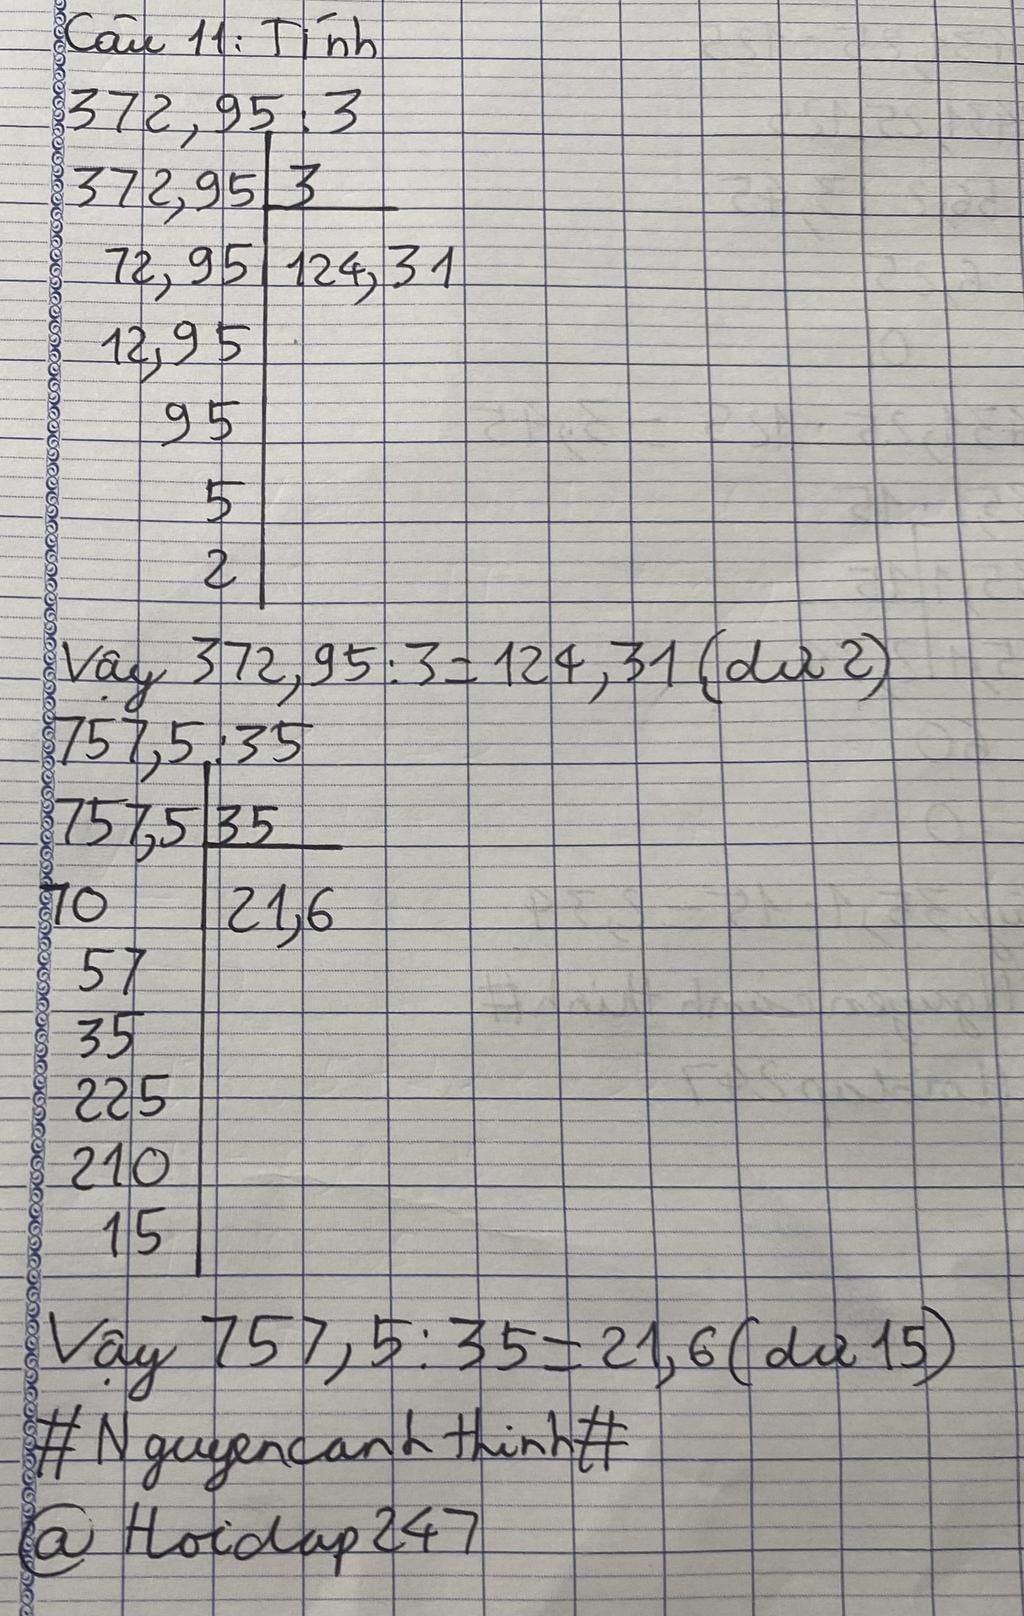 Câu 11: Tính
372,95:3
372,95 3
72,95 124,31
12,95
95
5
2
Vậy 372,95:3=124,31 (dư 2)
757,5:35
757,5 35
70 21,6
57
35
225
210
15
Vậy 757,5:35=21,6 (dư 15)
#Nguyencanhthinh#
@Hoidap247